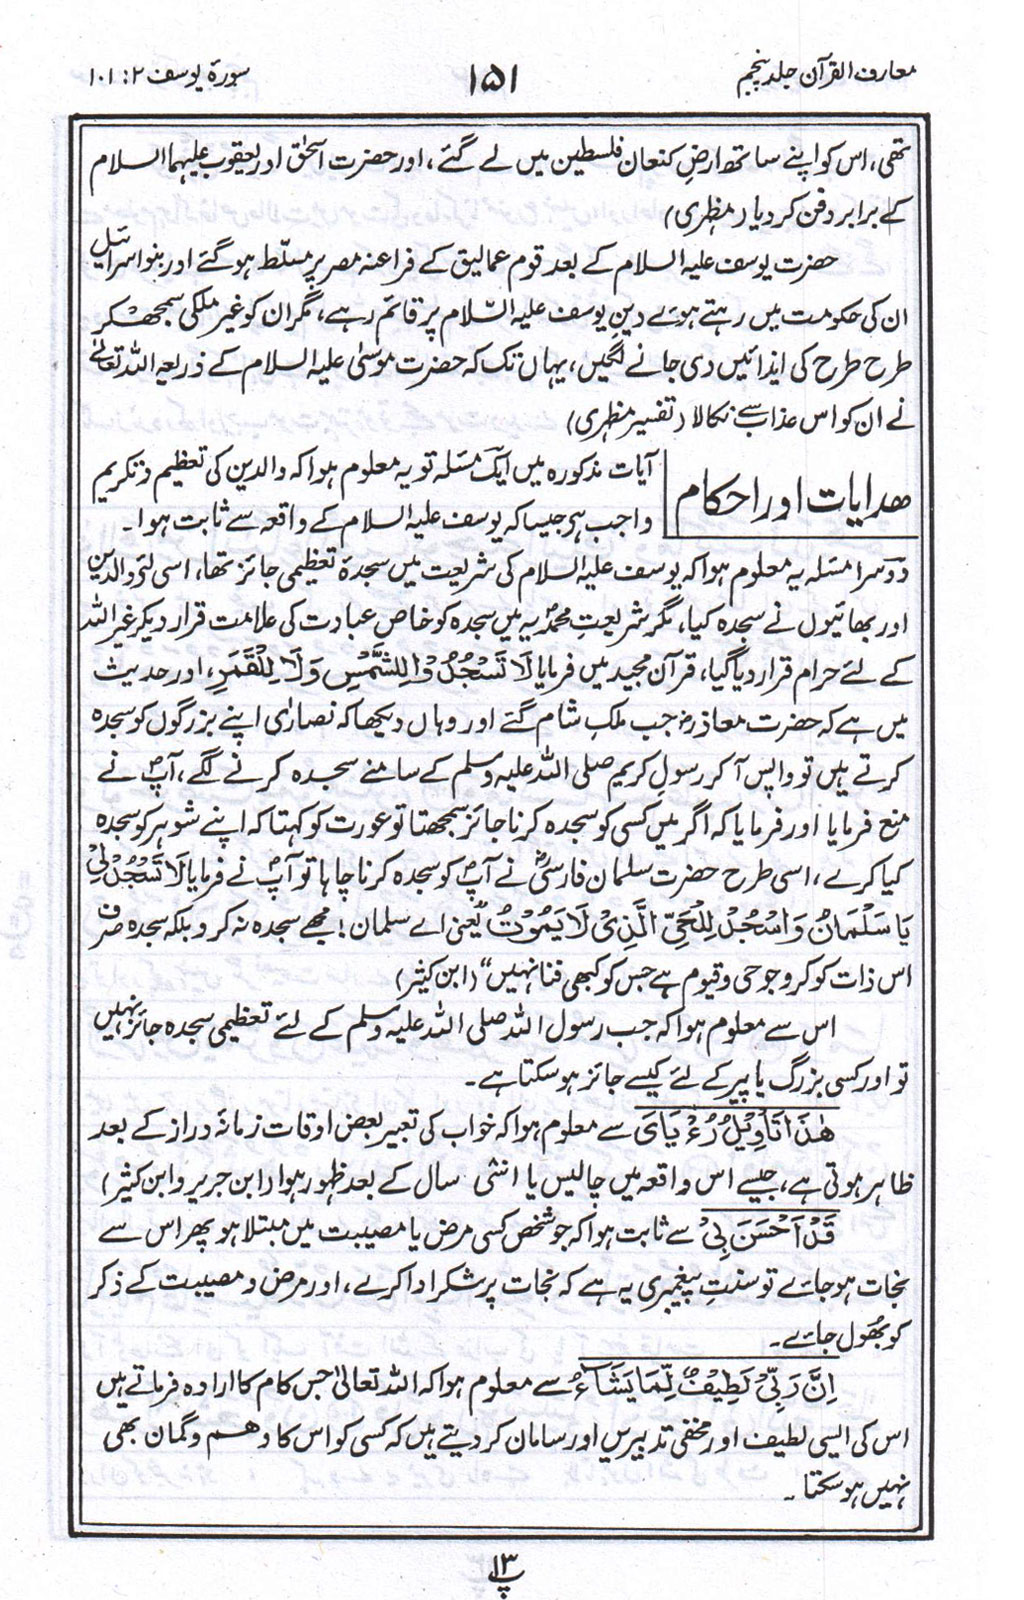 معارف القرآن جلد پنجم
۱۵۱
سورۃ یوسف ۱۲: ۱۰۱
تھی، اس کو اپنے ساتھ ارضِ کنعان فلسطین میں لے گئے، اور حضرت اسحٰق اور یعقوب علیہما السلام
کے برابر دفن کردیا (مظہری)
حضرت یوسف علیہ السلام کے بعد قوم عمالیق کے فراعنہ مصر پر مسلّط ہوگئے اور بنو اسرائیل
ان کی حکومت میں رہتے ہوئے دینِ یوسف علیہ السّلام پر قائم رہے، مگر ان کو غیر ملکی سمجھ کر
طرح طرح کی ایذائیں دی جانے لگیں، یہاں تک کہ حضرت موسیٰ علیہ السلام کے ذریعہ اللہ تعالیٰ
نے ان کو اس عذاب سے نکالا (تفسیر مظہری)
ھدایات اور احکام
آیات مذکورہ میں ایک مسئلہ تو یہ معلوم ہوا کہ والدین کی تعظیم و تکریم
واجب ہے جیسا کہ یوسف علیہ السلام کے واقعہ سے ثابت ہوا۔
دوسرا مسئلہ یہ معلوم ہوا کہ یوسف علیہ السلام کی شریعت میں سجدۂ تعظیمی جائز تھا، اسی لئے والدین
اور بھائیوں نے سجدہ کیا، مگر شریعتِ محمدیہ میں سجدہ کو خاص عبادت کی علامت قرار دیکر غیر اللہ
کے لئے حرام قرار دیا گیا، قرآن مجید میں فرمایا لَا تَسْجُدُوْا لِلشَّمْسِ وَلَا لِلْقَمَرِ، اور حدیث
میں ہے کہ حضرت معاذؓ جب ملکِ شام گئے اور وہاں دیکھا کہ نصاریٰ اپنے بزرگوں کو سجدہ
کرتے ہیں تو واپس آکر رسولِ کریم صلی اللہ علیہ وسلم کے سامنے سجدہ کرنے لگے، آپؐ نے
منع فرمایا اور فرمایا کہ اگر میں کسی کو سجدہ کرنا جائز سمجھتا تو عورت کو کہتا کہ اپنے شوہر کو سجدہ
کیا کرے، اسی طرح حضرت سلمان فارسیؓ نے آپؐ کو سجدہ کرنا چاہا تو آپؐ نے فرمایا لَا تَسْجُدْ لِیْ
یَا سَلْمَانُ وَاسْجُدْ لِلْحَیِّ الَّذِیْ لَا یَمُوْتُ ”یعنی اے سلمان! مجھے سجدہ نہ کرو بلکہ سجدہ صرف
اس ذات کو کرو جو حی وقیوم ہے جس کو کبھی فنا نہیں“ (ابن کثیر)
اس سے معلوم ہوا کہ جب رسول اللہ صلی اللہ علیہ وسلم کے لئے تعظیمی سجدہ جائز نہیں
تو اور کسی بزرگ یا پیر کے لئے کیسے جائز ہوسکتا ہے۔
ھٰذَا تَاْوِیْلُ رُءْیَایَ سے معلوم ہوا کہ خواب کی تعبیر بعض اوقات زمانۂ دراز کے بعد
ظاہر ہوتی ہے، جیسے اس واقعہ میں چالیس یا اسّی سال کے بعد ظہور ہوا (ابن جریر و ابن کثیر)
قَدْ اَحْسَنَ بِیْ سے ثابت ہوا کہ جو شخص کسی مرض یا مصیبت میں مبتلا ہو پھر اس سے
نجات ہوجائے تو سنتِ پیغمبری یہ ہے کہ نجات پر شکر ادا کرے، اور مرض و مصیبت کے ذکر
کو بھول جائے۔
اِنَّ رَبِّیْ لَطِیْفٌ لِّمَا یَشَآءُ سے معلوم ہوا کہ اللہ تعالیٰ جس کام کا ارادہ فرماتے ہیں
اس کی ایسی لطیف اور مخفی تدبیریں اور سامان کردیتے ہیں کہ کسی کو اس کا وھم و گمان بھی
نہیں ہوسکتا۔
پ۱۳